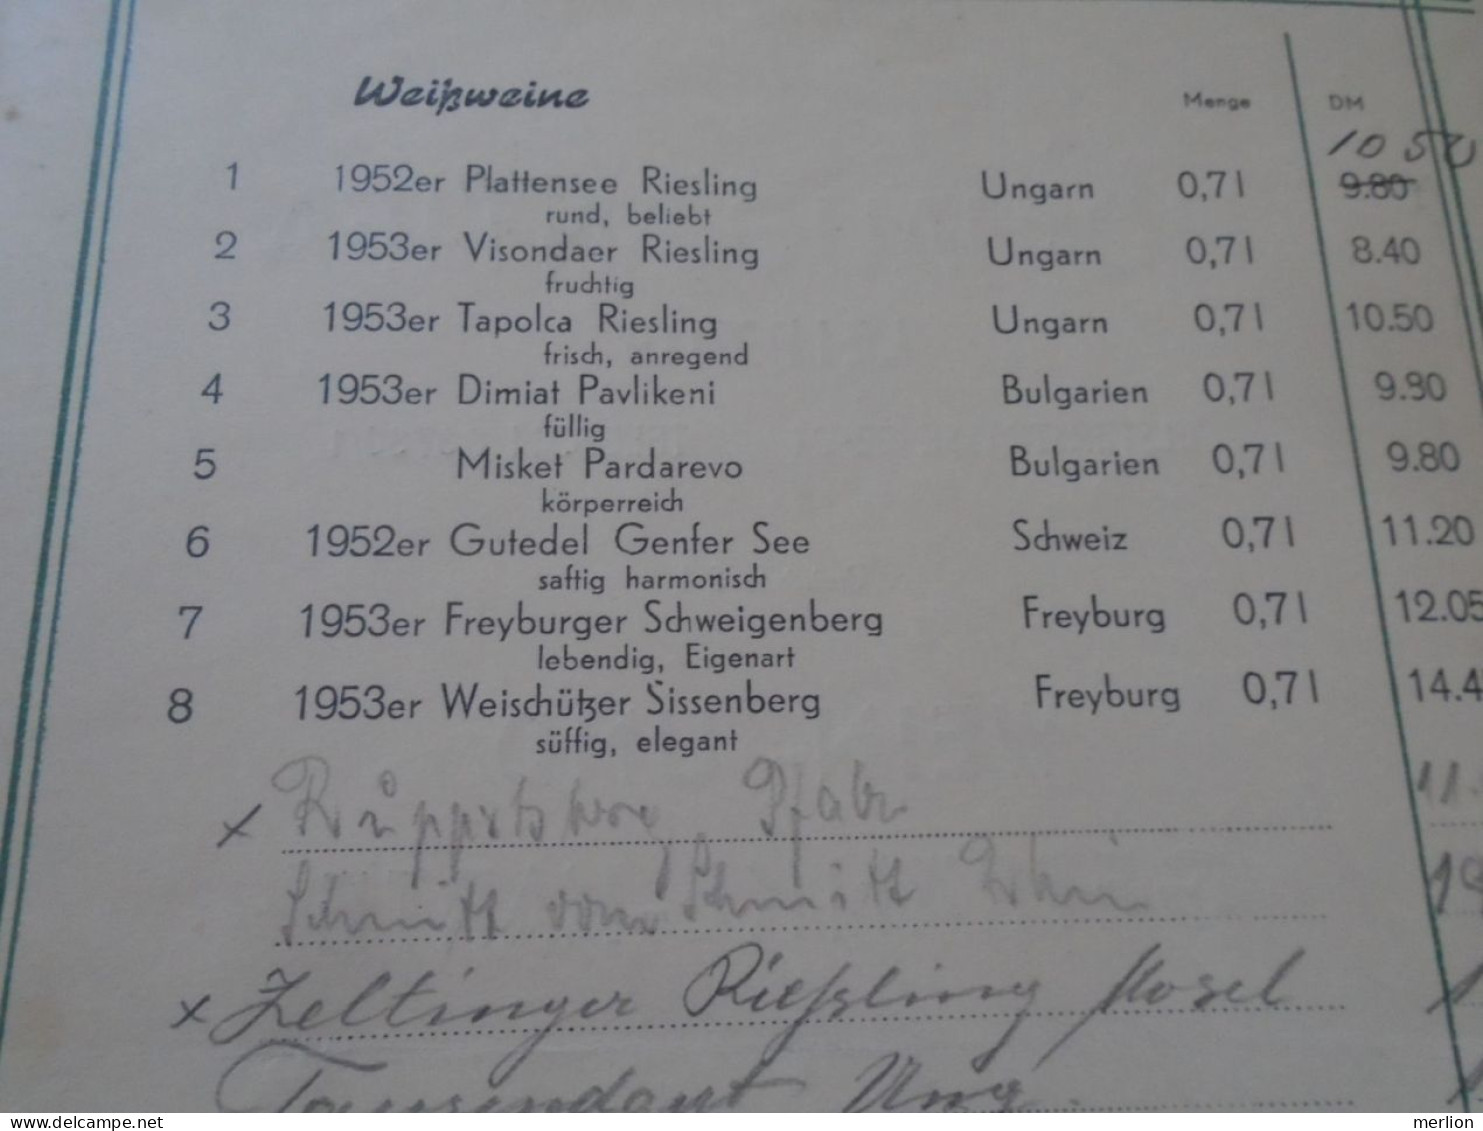 Weißweine Menge DM
10 50
1 1952er Plattensee Riesling Ungarn 0,7 l 9.80
rund, beliebt
2 1953er Visondaer Riesling Ungarn 0,7 l 8.40
fruchtig
3 1953er Tapolca Riesling Ungarn 0,7 l 10.50
frisch, anregend
4 1953er Dimiat Pavlikeni Bulgarien 0,7 l 9.80
füllig
5 Misket Pardarevo Bulgarien 0,7 l 9.80
körperreich
6 1952er Gutedel Genfer See Schweiz 0,7 l 11.20
saftig harmonisch
7 1953er Freyburger Schweigenberg Freyburg 0,7 l 12.05
lebendig, Eigenart
8 1953er Weischützer Sissenberg Freyburg 0,7 l 14.4
süffig, elegant
x Pfalz 11.
Schmitt vom Schmitt Rhein
x Zeltinger Rießling Mosel
Ung.
delcampe.net merlion